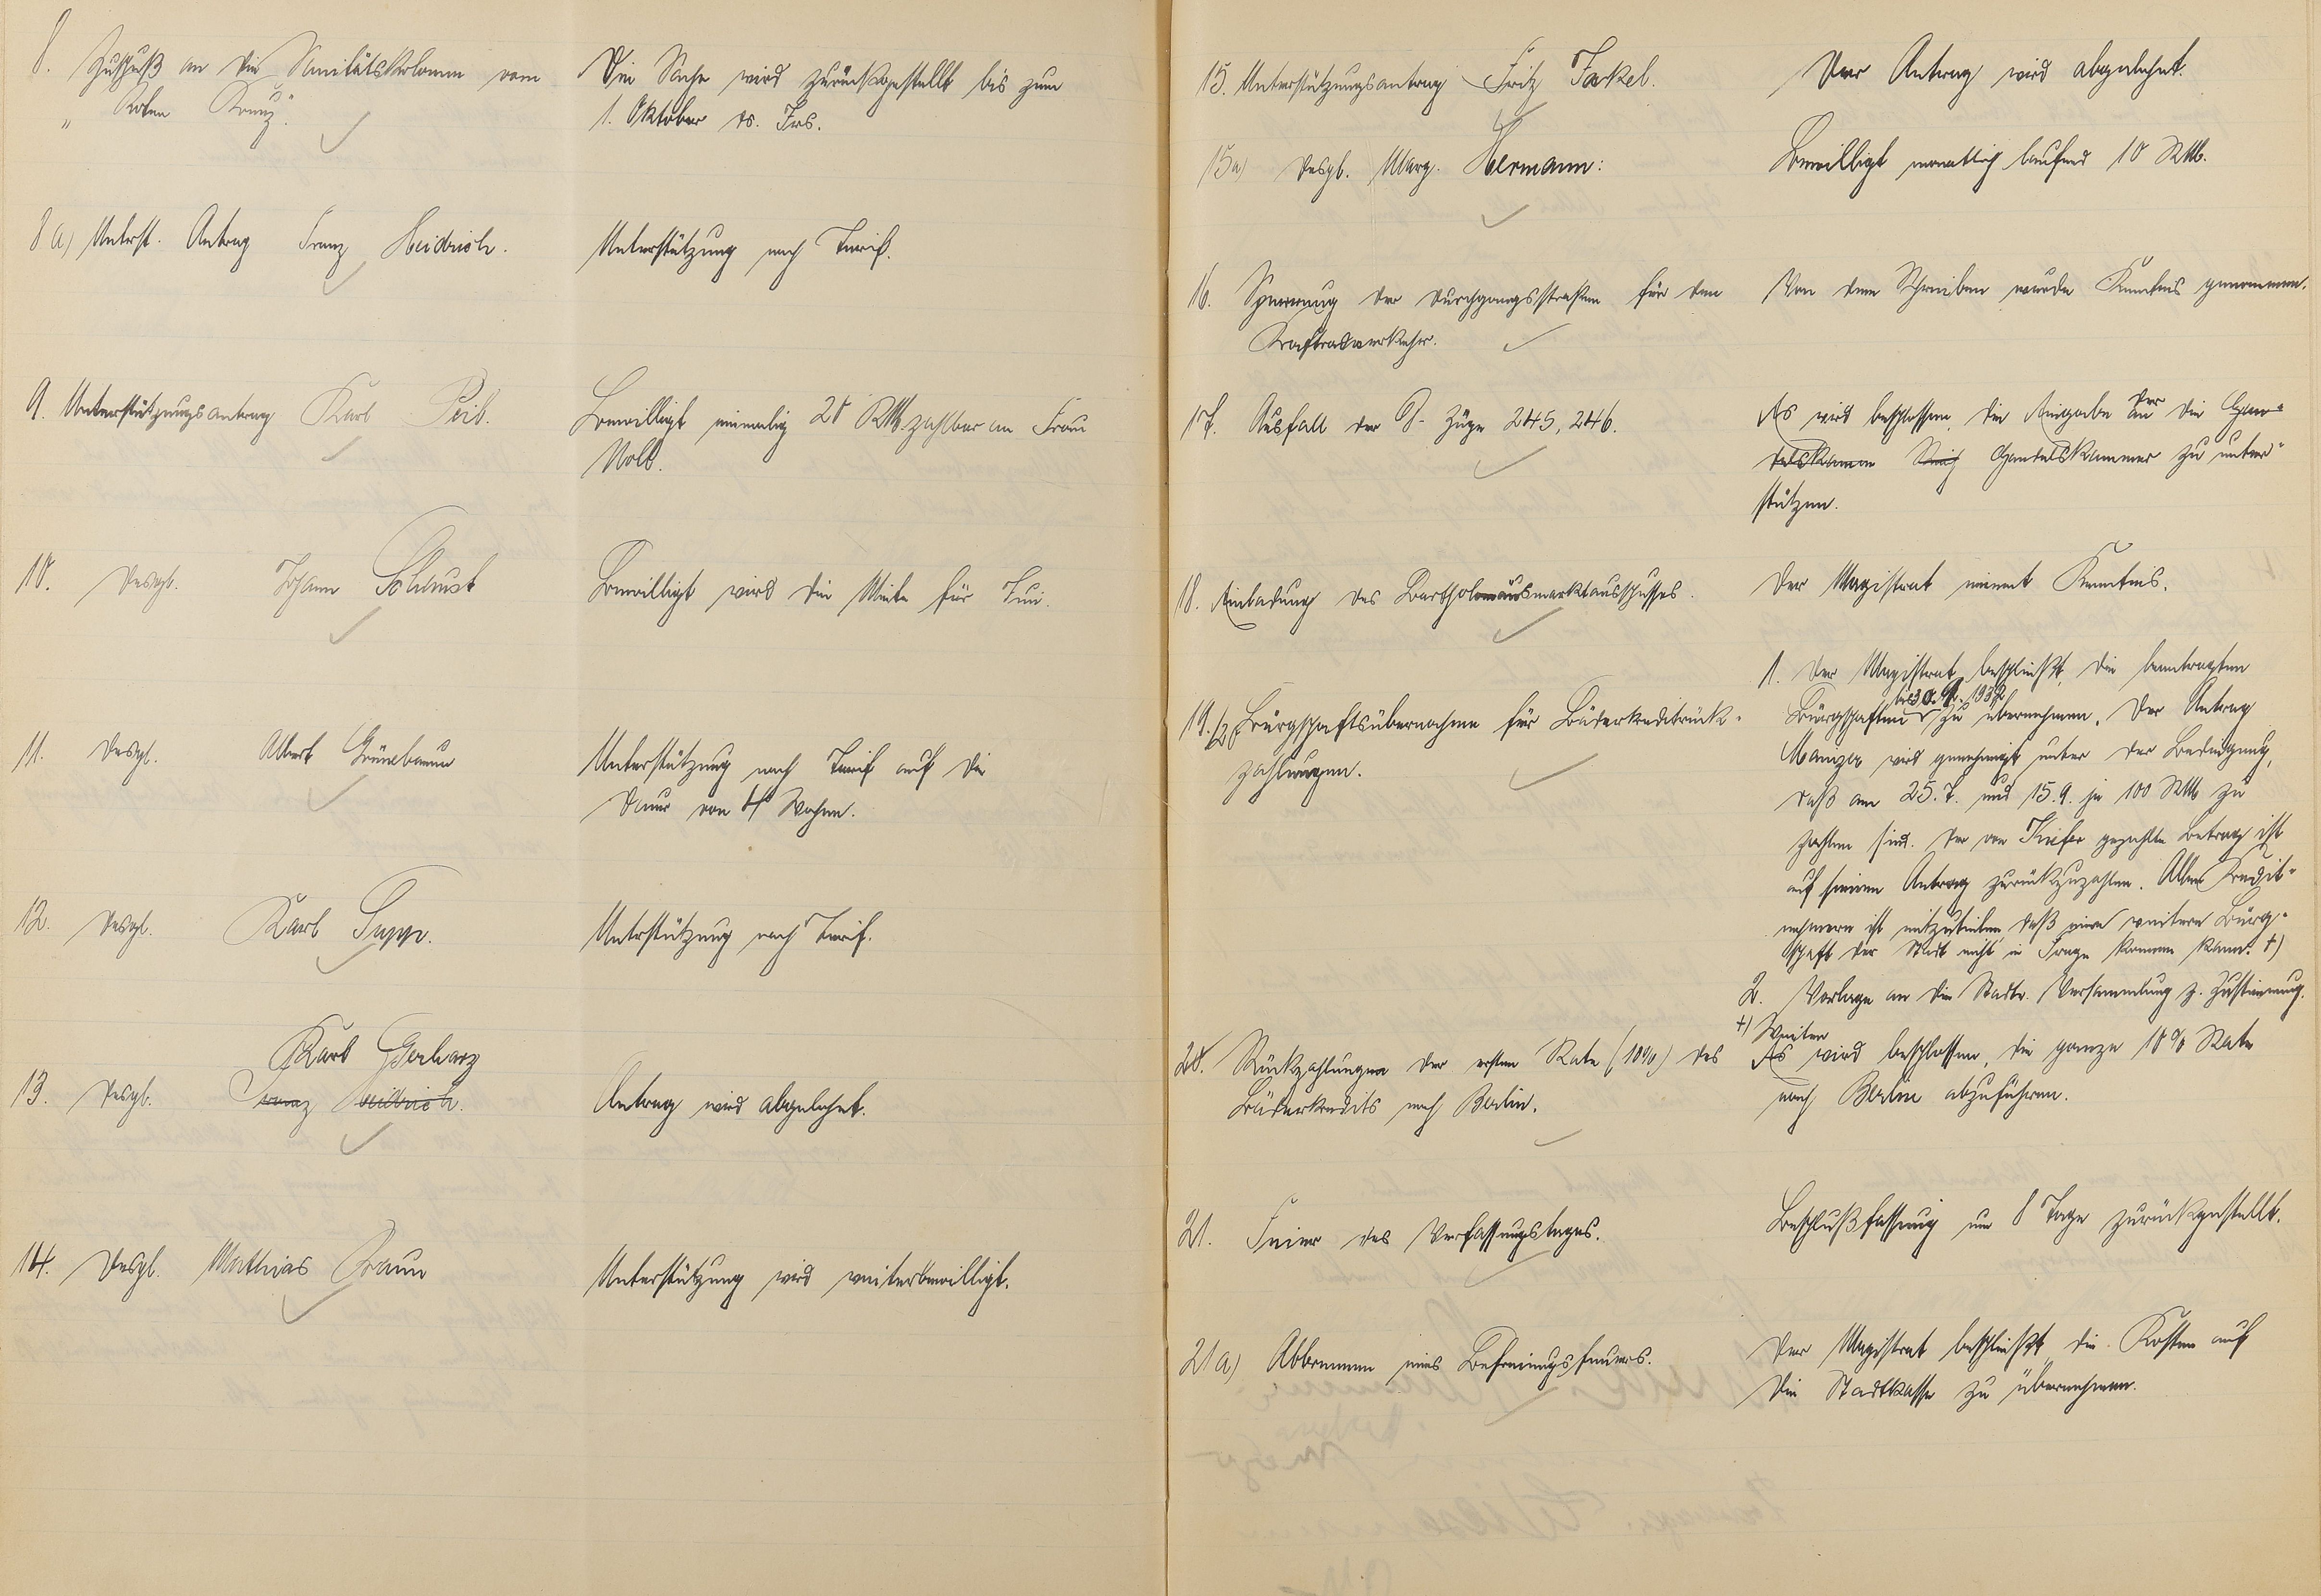 8. Zuschuß an die Sanitätskolonne vom
„Roten Kreuz".
Die Sache wird zurückgestellt bis zum
1. Oktober ds. Jrs.
8a) Unterst. Antrag Franz Heidrich.
Unterstützung nach Tarif.
9. Unterstützungsantrag Karl Peib.
Bewilligt einmalig 20 RM. zahlbar an Frau
Noll.
10. Desgl. Johann Schaust
Bewilligt wird die Miete für Juni.
11. Desgl. Albert Grünebaum
Unterstützung nach Tarif auf die
Dauer von 4 Wochen.
12. Desgl. Karl Supp.
Unterstützung nach Tarif.
Karl Gerharz
13. Desgl. Franz Heidrich.
Antrag wird abgelehnt.
14. Desgl. Mathias Braun
Unterstützung wird weiterbewilligt.
15. Unterstützungsantrag Fritz Jackel.
Der Antrag wird abgelehnt.
15a) Desgl. Marg. Hermann:
Bewilligt monatlich laufend 10 RM.
16. Sperrung der Durchgangsstraßen für den
Kraftradverkehr.
Von dem Schreiben wurde Kenntnis genommen.
17. Ausfall der D-Züge 245, 246.
Es wird beschlossen, die Eingabe der an die Han-
delskammer Handelskammer zu unter-
stützen.
18. Einladung des Bartholomäusmarktausschusses.
Der Magistrat nimmt Kenntnis.
19. Bürgschaftsübernahme für Bäderkreditrück-
zahlungen.
1. Der Magistrat beschließt, die beantragten
Bürgschaften bis 30. 9. 1932 zu übernehmen. Der Antrag
wird genehmigt unter der Bedingung,
daß am 25.7. und 15.9. je 100 RM zu
zahlen sind. Der von Kiefer gezahlte Betrag ist
auf seinen Antrag zurückzuzahlen. Allen Kredit-
nehmern ist mitzuteilen daß eine weitere Bürg-
schaft der Stadt nicht in Frage kommen kann. +)
2. Vorlage an die Stadtv. Versammlung z. Zustimmung.
20. Rückzahlungen der ersten Rate (10%) des
Bäderkredits nach Berlin.
+) Weiter
Es wird beschlossen, die ganze 10% Rate
nach Berlin abzuführen.
21. Feier des Verfassungstages.
Beschlußfassung um 8 Tage zurückgestellt.
21a) Abbrennen eines Befreiungsfeuers.
Der Magistrat beschließt die Kosten auf
die Stadtkasse zu übernehmen.